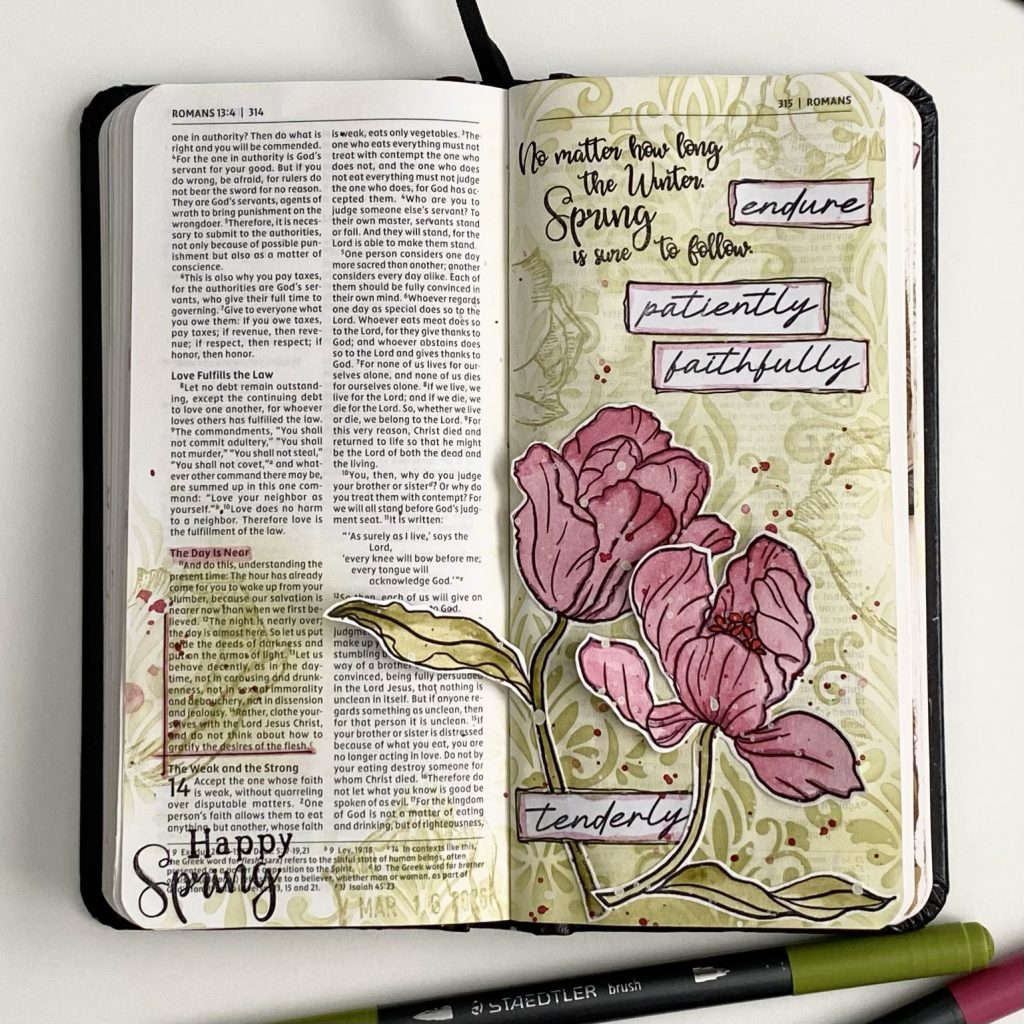 ROMANS 13:4 | 314
one in authority? Then do what is
right and you will be commended.
⁴For the one in authority is God's
servant for your good. But if you
do wrong, be afraid, for rulers do
not bear the sword for no reason.
They are God's servants, agents of
wrath to bring punishment on the
wrongdoer. ⁵Therefore, it is neces-
sary to submit to the authorities,
not only because of possible pun-
ishment but also as a matter of
conscience.
⁶This is also why you pay taxes,
for the authorities are God's ser-
vants, who give their full time to
governing. ⁷Give to everyone what
you owe them: If you owe taxes,
pay taxes; if revenue, then reve-
nue; if respect, then respect; if
honor, then honor.
Love Fulfills the Law
⁸Let no debt remain outstand-
ing, except the continuing debt
to love one another, for whoever
loves others has fulfilled the law.
⁹The commandments, "You shall
not commit adultery," "You shall
not murder," "You shall not steal,"
"You shall not covet," and what-
ever other command there may be,
are summed up in this one com-
mand: "Love your neighbor as
yourself." ¹⁰Love does no harm
to a neighbor. Therefore love is
the fulfillment of the law.
The Day Is Near
¹¹And do this, understanding the
present time: The hour has already
come for you to wake up from your
slumber, because our salvation is
nearer now than when we first be-
lieved. ¹²The night is nearly over;
the day is almost here. So let us put
aside the deeds of darkness and
put on the armor of light. ¹³Let us
behave decently, as in the day-
time, not in carousing and drunk-
enness, not in sexual immorality
and debauchery, not in dissension
and jealousy. ¹⁴Rather, clothe your-
selves with the Lord Jesus Christ,
and do not think about how to
gratify the desires of the flesh.
The Weak and the Strong
14 Accept the one whose faith
is weak, without quarreling
over disputable matters. ²One
person's faith allows them to eat
anything, but another, whose faith
is weak, eats only vegetables. ³The
one who eats everything must not
treat with contempt the one who
does not, and the one who does
not eat everything must not judge
the one who does, for God has ac-
cepted them. ⁴Who are you to
judge someone else's servant? To
their own master, servants stand
or fall. And they will stand, for the
Lord is able to make them stand.
⁵One person considers one day
more sacred than another; another
considers every day alike. Each of
them should be fully convinced in
their own mind. ⁶Whoever regards
one day as special does so to the
Lord. Whoever eats meat does so
to the Lord, for they give thanks to
God; and whoever abstains does
so to the Lord and gives thanks to
God. ⁷For none of us lives for our-
selves alone, and none of us dies
for ourselves alone. ⁸If we live, we
live for the Lord; and if we die, we
die for the Lord. So, whether we live
or die, we belong to the Lord. ⁹For
this very reason, Christ died and
returned to life so that he might
be the Lord of both the dead and
the living.
¹⁰You, then, why do you judge
your brother or sister? Or why do
you treat them with contempt? For
we will all stand before God's judg-
ment seat. ¹¹It is written:
"'As surely as I live,' says the
Lord,
'every knee will bow before me;
every tongue will
acknowledge God.'"
¹²So then, each of us will give an
to God.
judgment
make up
stumbling
way of a brother
convinced, being fully persuaded
in the Lord Jesus, that nothing is
unclean in itself. But if anyone re-
gards something as unclean, then
for that person it is unclean. ¹⁵If
your brother or sister is distressed
because of what you eat, you are
no longer acting in love. Do not by
your eating destroy someone for
whom Christ died. ¹⁶Therefore do
not let what you know is good be
spoken of as evil. ¹⁷For the kingdom
of God is not a matter of eating
and drinking, but of righteousness,
9 Lev. 19:18 14 In contexts like this,
the Greek word for flesh (sarx) refers to the sinful state of human beings, often
presented as a power in opposition to the Spirit. 10 The Greek word for brother
to a believer, whether man or woman, as part of
15 and 21. 11 Isaiah 45:23
Happy
Spring
MAR 16
315 | ROMANS
No matter how long
the Winter,
Spring
is sure to follow.
endure
patiently
faithfully
tenderly
STAEDTLER brush